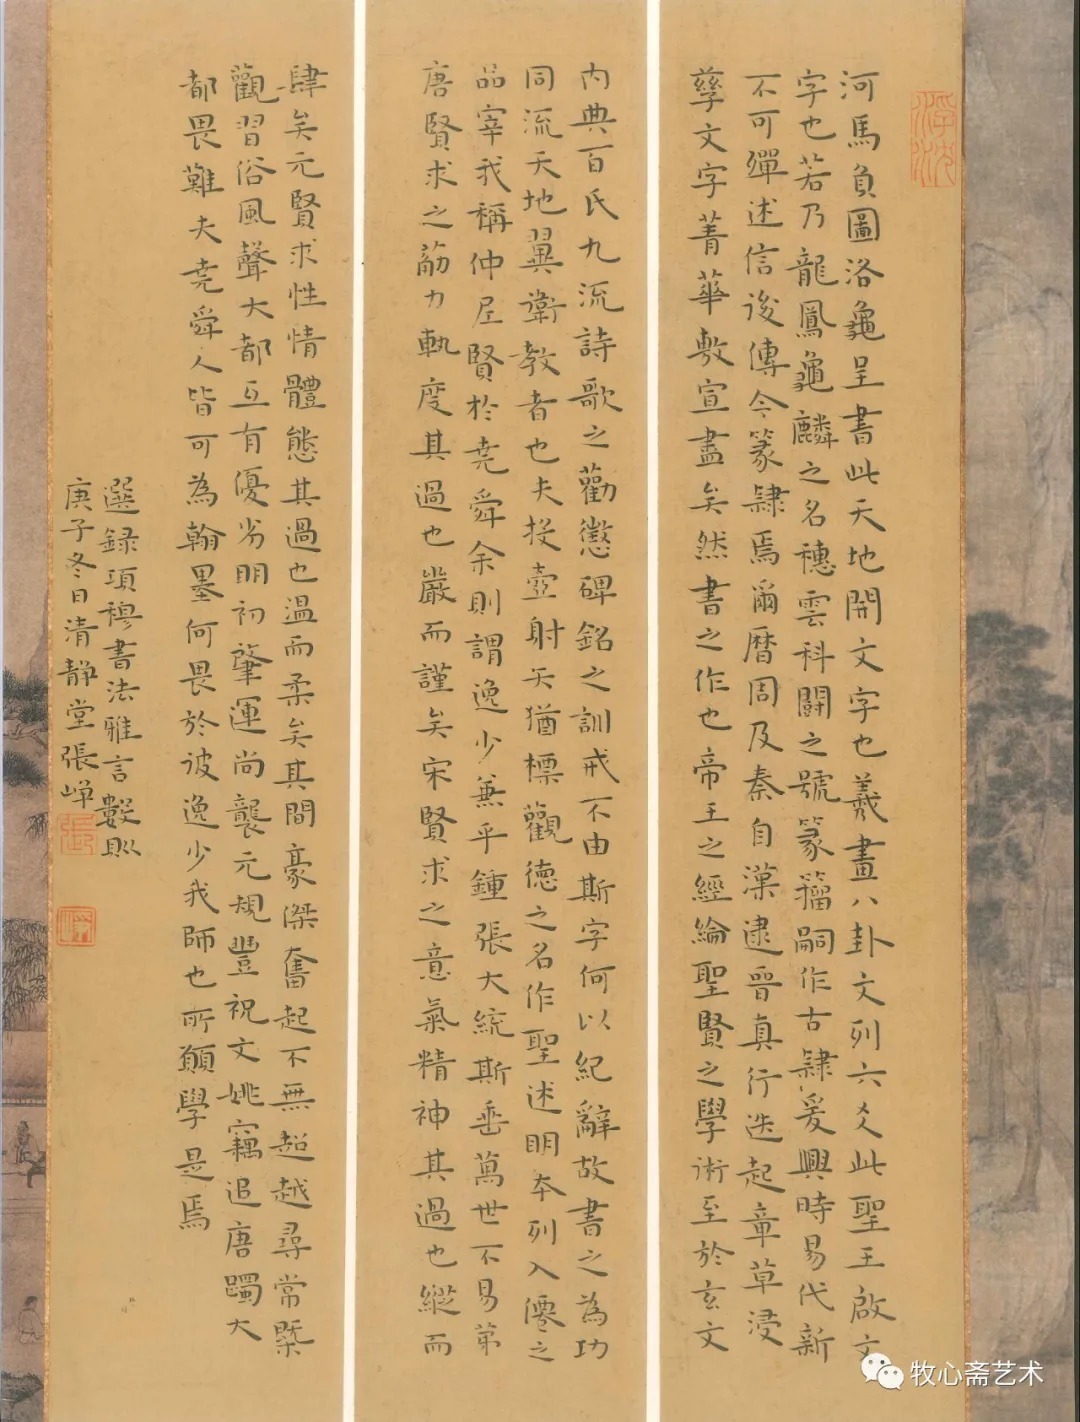 河馬負圖洛龜呈書此天地開文字也羲畫八卦文列六爻此聖王啟文
字也若乃龍鳳龜麟之名穗雲科鬪之號篆籀嗣作古隸爰興時易代新
不可殫述信後傳今篆隸焉爾曆周及秦自漢逮晉真行迭起章草浸
孳文字菁華敷宣盡矣然書之作也帝王之經綸聖賢之學術至於玄文
內典百氏九流詩歌之勸懲碑銘之訓戒不由斯字何以紀辭故書之為功
同流天地翼衛教者也夫投壺射矢猶標觀德之名作聖述明本列入僊之
品宰我稱仲尼賢於堯舜余則謂逸少兼乎鍾張大統斯垂萬世不易第
唐賢求之筋力軌度其過也嚴而謹矣宋賢求之意氣精神其過也縱而
肆矣元賢求性情體態其過也溫而柔矣其間豪傑奮起不無超越尋常槩
觀習俗風聲大都互有優劣明初肇運尚襲元規豐祝文姚竊追唐躅大
都畏難夫堯舜人皆可為翰墨何畏於彼逸少我師也所願學是焉
選錄項穆書法雅言數則
庚子冬日清靜堂張嶂
牧心斋艺术